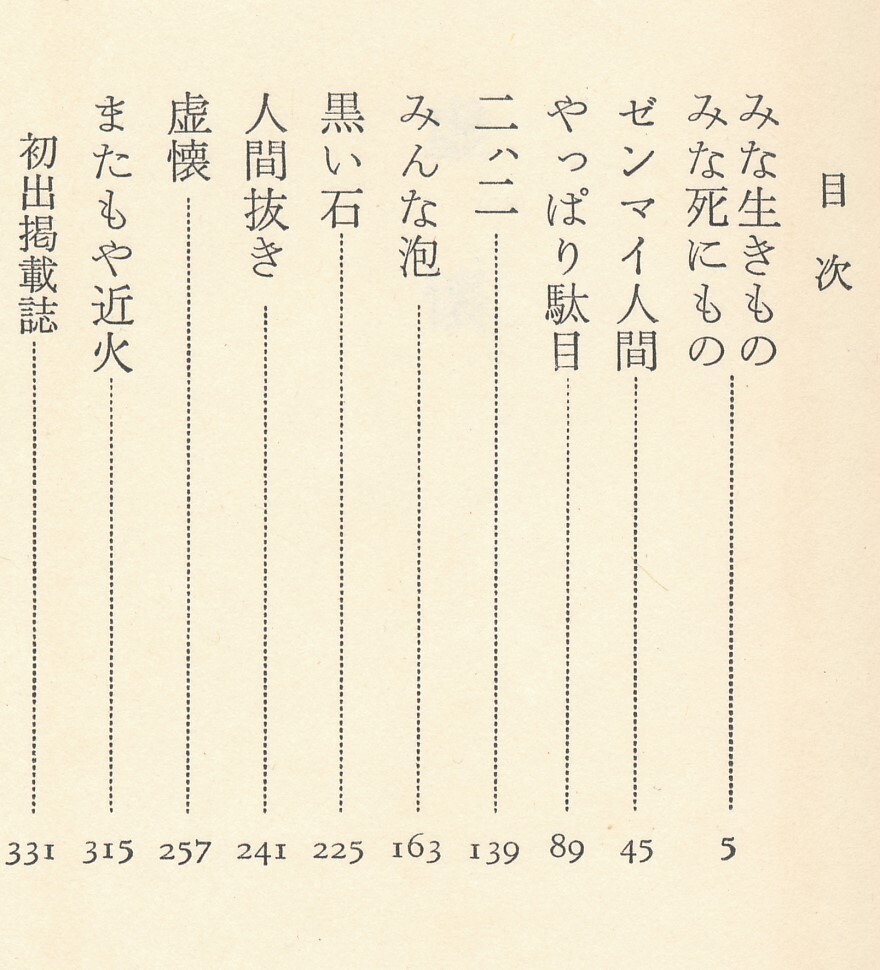 目次
みな生きもの
みな死にもの 5
ゼンマイ人間 45
やっぱり駄目 89
二ハ二 139
みんな泡 163
黒い石 225
人間抜き 241
虚懐 257
またもや近火 315
初出掲載誌 331